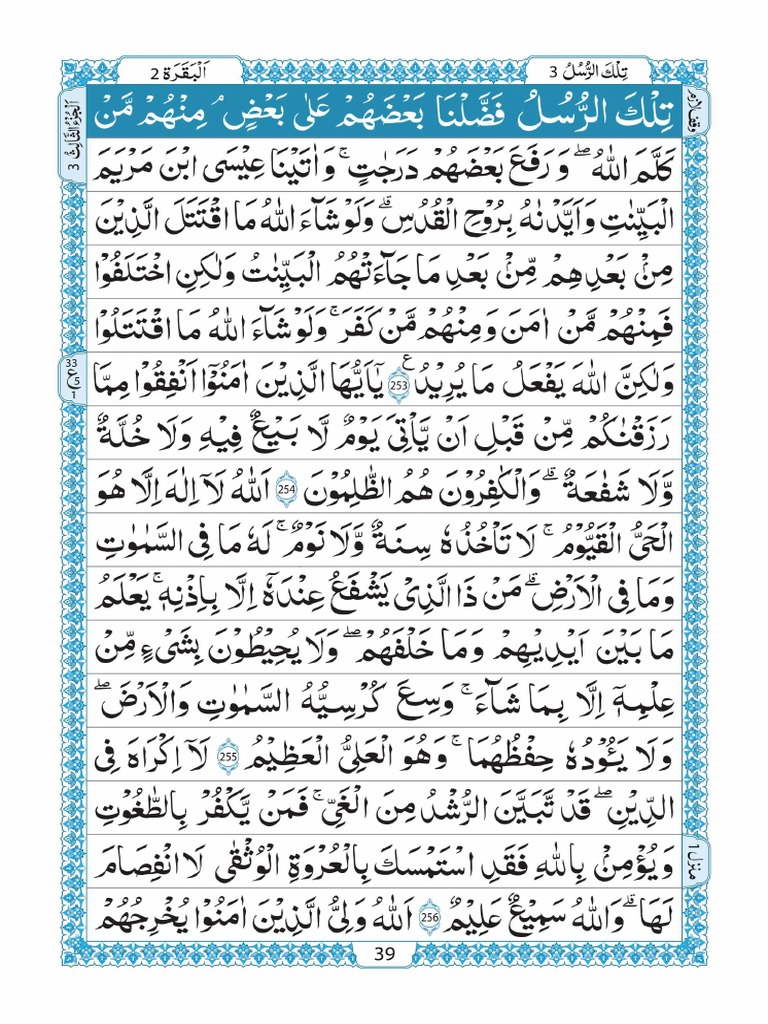 تِلْكَ الرُّسُلُ 3
اَلْبَقَرَة 2
وقف لازم
اَلْجُزْءُ الثَّالِثُ 3
تِلْكَ الرُّسُلُ فَضَّلْنَا بَعْضَهُمْ عَلٰى بَعْضٍ ۘ مِنْهُمْ مَّنْ
كَلَّمَ اللّٰهُ ۖ وَ رَفَعَ بَعْضَهُمْ دَرَجٰتٍ ۚ وَ اٰتَيْنَا عِيْسَى ابْنَ مَرْيَمَ
الْبَيِّنٰتِ وَ اَيَّدْنٰهُ بِرُوْحِ الْقُدُسِ ۗ وَ لَوْ شَآءَ اللّٰهُ مَا اقْتَتَلَ الَّذِيْنَ
مِنْۢ بَعْدِهِمْ مِّنْۢ بَعْدِ مَا جَآءَتْهُمُ الْبَيِّنٰتُ وَ لٰكِنِ اخْتَلَفُوْا
فَمِنْهُمْ مَّنْ اٰمَنَ وَ مِنْهُمْ مَّنْ كَفَرَ ۚ وَ لَوْ شَآءَ اللّٰهُ مَا اقْتَتَلُوْا
33
ع
5
1
وَ لٰكِنَّ اللّٰهَ يَفْعَلُ مَا يُرِيْدُ ع 253 يٰۤاَيُّهَا الَّذِيْنَ اٰمَنُوْۤا اَنْفِقُوْا مِمَّا
رَزَقْنٰكُمْ مِّنْ قَبْلِ اَنْ يَّاْتِيَ يَوْمٌ لَّا بَيْعٌ فِيْهِ وَ لَا خُلَّةٌ
وَّ لَا شَفٰعَةٌ ۗ وَ الْكٰفِرُوْنَ هُمُ الظّٰلِمُوْنَ 254 اَللّٰهُ لَاۤ اِلٰهَ اِلَّا هُوَ
الْحَيُّ الْقَيُّوْمُ ۚ لَا تَاْخُذُهٗ سِنَةٌ وَّ لَا نَوْمٌ ۚ لَهٗ مَا فِي السَّمٰوٰتِ
وَ مَا فِي الْاَرْضِ ۗ مَنْ ذَا الَّذِيْ يَشْفَعُ عِنْدَهٗۤ اِلَّا بِاِذْنِهٖ ۚ يَعْلَمُ
مَا بَيْنَ اَيْدِيْهِمْ وَ مَا خَلْفَهُمْ ۖ وَ لَا يُحِيْطُوْنَ بِشَيْءٍ مِّنْ
عِلْمِهٖۤ اِلَّا بِمَا شَآءَ ۚ وَسِعَ كُرْسِيُّهُ السَّمٰوٰتِ وَ الْاَرْضَ ۖ
وَ لَا يَـُٔوْدُهٗ حِفْظُهُمَا ۚ وَ هُوَ الْعَلِيُّ الْعَظِيْمُ 255 لَاۤ اِكْرَاهَ فِي
الدِّيْنِ ۖ قَدْ تَّبَيَّنَ الرُّشْدُ مِنَ الْغَيِّ ۚ فَمَنْ يَّكْفُرْ بِالطَّاغُوْتِ
منزل 1
وَ يُؤْمِنْۢ بِاللّٰهِ فَقَدِ اسْتَمْسَكَ بِالْعُرْوَةِ الْوُثْقٰى لَا انْفِصَامَ
لَهَا ۗ وَ اللّٰهُ سَمِيْعٌ عَلِيْمٌ 256 اَللّٰهُ وَلِيُّ الَّذِيْنَ اٰمَنُوْا يُخْرِجُهُمْ
39